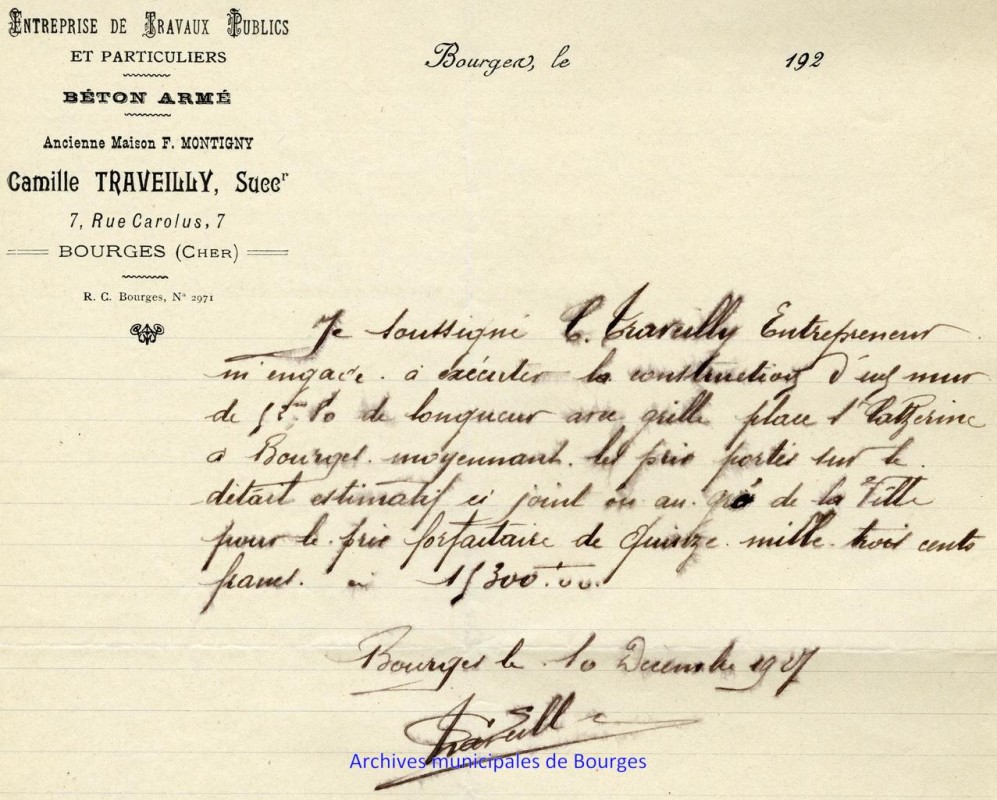 ENTREPRISE DE TRAVAUX PUBLICS
ET PARTICULIERS
BÉTON ARMÉ
Ancienne Maison F. MONTIGNY
Camille TRAVEILLY, Succr
7, Rue Carolus, 7
BOURGES (CHER)
R. C. Bourges, No 2971
Bourges, le 192
Je soussigné C. Traveilly Entrepreneur
m'engage à exécuter la construction d'un mur
de longueur avec grille place Ste Catherine
à Bourges moyennant les prix portés sur le
détail estimatif ci joint ou au gré de la Ville
pour le prix forfaitaire de Quinze mille trois cents
francs. 15300.00
Bourges le 10 Décembre 1927
Archives municipales de Bourges